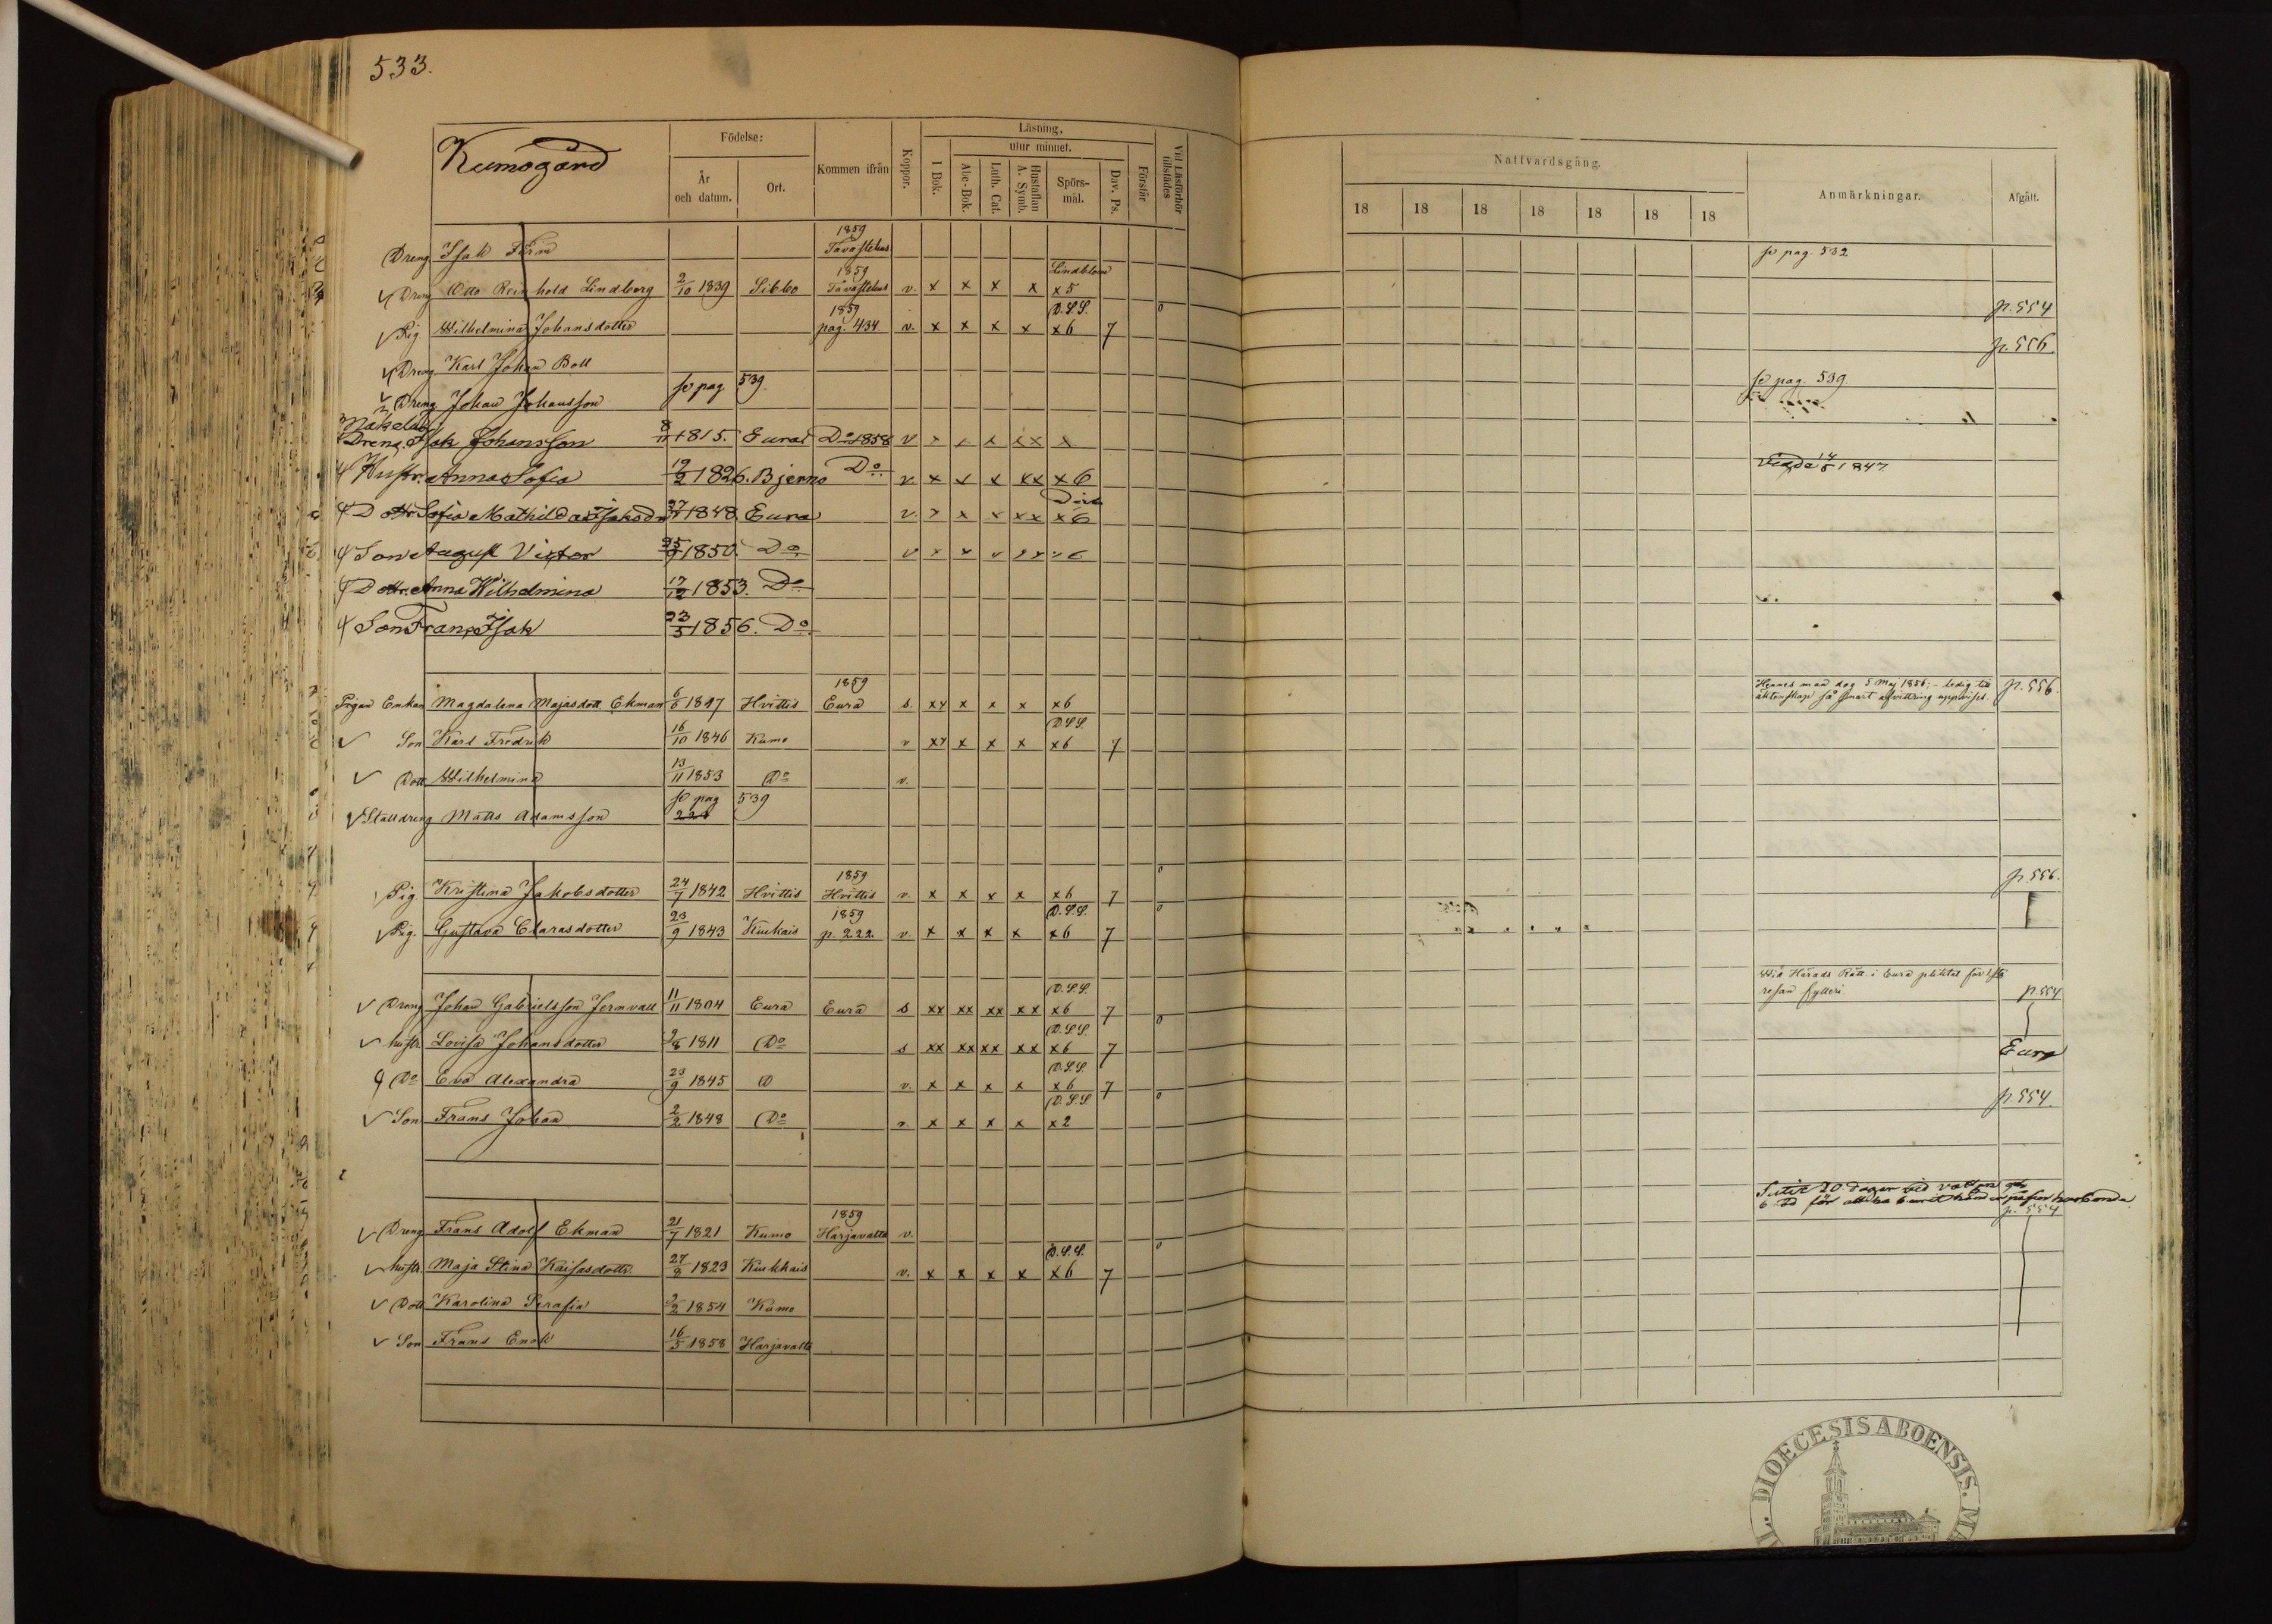 533.
Kumogård
Födelse:
År och datum.
Ort.
Kommen ifrån
Koppor.
Läsning,
utur minnet.
I Bok.
Abc-Bok.
Luth. Cat.
Hustaflan A. Symb.
Spörs-mål.
Dav. Ps.
Förstår
Vid Läsförhör tillstädes
Nattvardsgång.
18 18 18 18 18 18 18
Anmärkningar.
Afgått.
Dreng Isak 1859 Tavastehus se pag. 532
Dreng Otto Reinhold Lindberg 2/10 1839 Sibbo 1859 Tavastehus v. x x x x Lindblom x 5 p. 554
Pig. Wilhelmina Johansdotter 1859 pag. 434 v. x x x x D.S.S. x 6 7 p. 556.
Dreng Karl Johan Boll
Dreng Johan Johansson se pag 539 se pag. 539
Dreng Isak Johansson 8/11 1815. Eura Do 1858 v
Hustr. Anna Sofia 19/2 1826. Bjerno Do v x x x xx x 6 Vigde 14/8 1847
Dottr. Sofia Mathilda Isaksdr 27/7 1848 Eura v x x x xx x 6
Son August Victor 25/9 1850. Do v x x
Dottr. Anna Wilhelmina 17/12 1853. Do
Son Frans Isak 23/5 1856. Do.
Pigan Enkan Magdalena Majasdott Ekman 6/6 1817 Hvittis 1859 Eura s. xx x x x x 6 Hennes man dog 5 Maj 1856; - ledig till
äktenskap så snart afvittring uppvises. p. 556.
Son Karl Fredrik 16/10 1846 Kumo v xx x x x D.S.S. x 6 7
Dott Wilhelmina 13/11 1853 Do v.
Stalldreng Matts Adamsson se pag 539
Pig Kristina Jakobsdotter 24/7 1842 Hvittis 1859 Hvittis v. x x x x x 6 7 p. 556.
Pig. Gustava Clarasdotter 23/9 1843 Kiukais 1859 p. 222. v. x x x x D.S.S. x 6 7
Wid Härads Rätt i Eura pliktat för 1sta
resan fylleri.
Dreng Johan Gabrielsson Jernvall 11/11 1804 Eura Eura s xx xx xx xx D.S.S. x 6 7 p. 554
hustr. Lovisa Johansdotter 2/8 1811 Do s xx xx xx xx D.S.S. x 6 7
Do Eva Alexandra 23/9 1845 D v. x x x x D.S.S. x 6 7 Eura
Son Frans Johan 2/2 1848 Do v. x x x x D.S.S. x 2 p. 554.
Dreng Frans Adolf Ekman 21/7 1821 Kumo 1859 Harjavalta v. p. 554
hustr. Maja Stina Kaisasdottr. 27/8 1823 Kiukkais v. x x x x D.S.S. x 6 7
Dott Karolina Serafia 2/2 1854 Kumo
Son Frans Enok 16/5 1858 Harjavalta
DIOECESIS ABOENSIS.